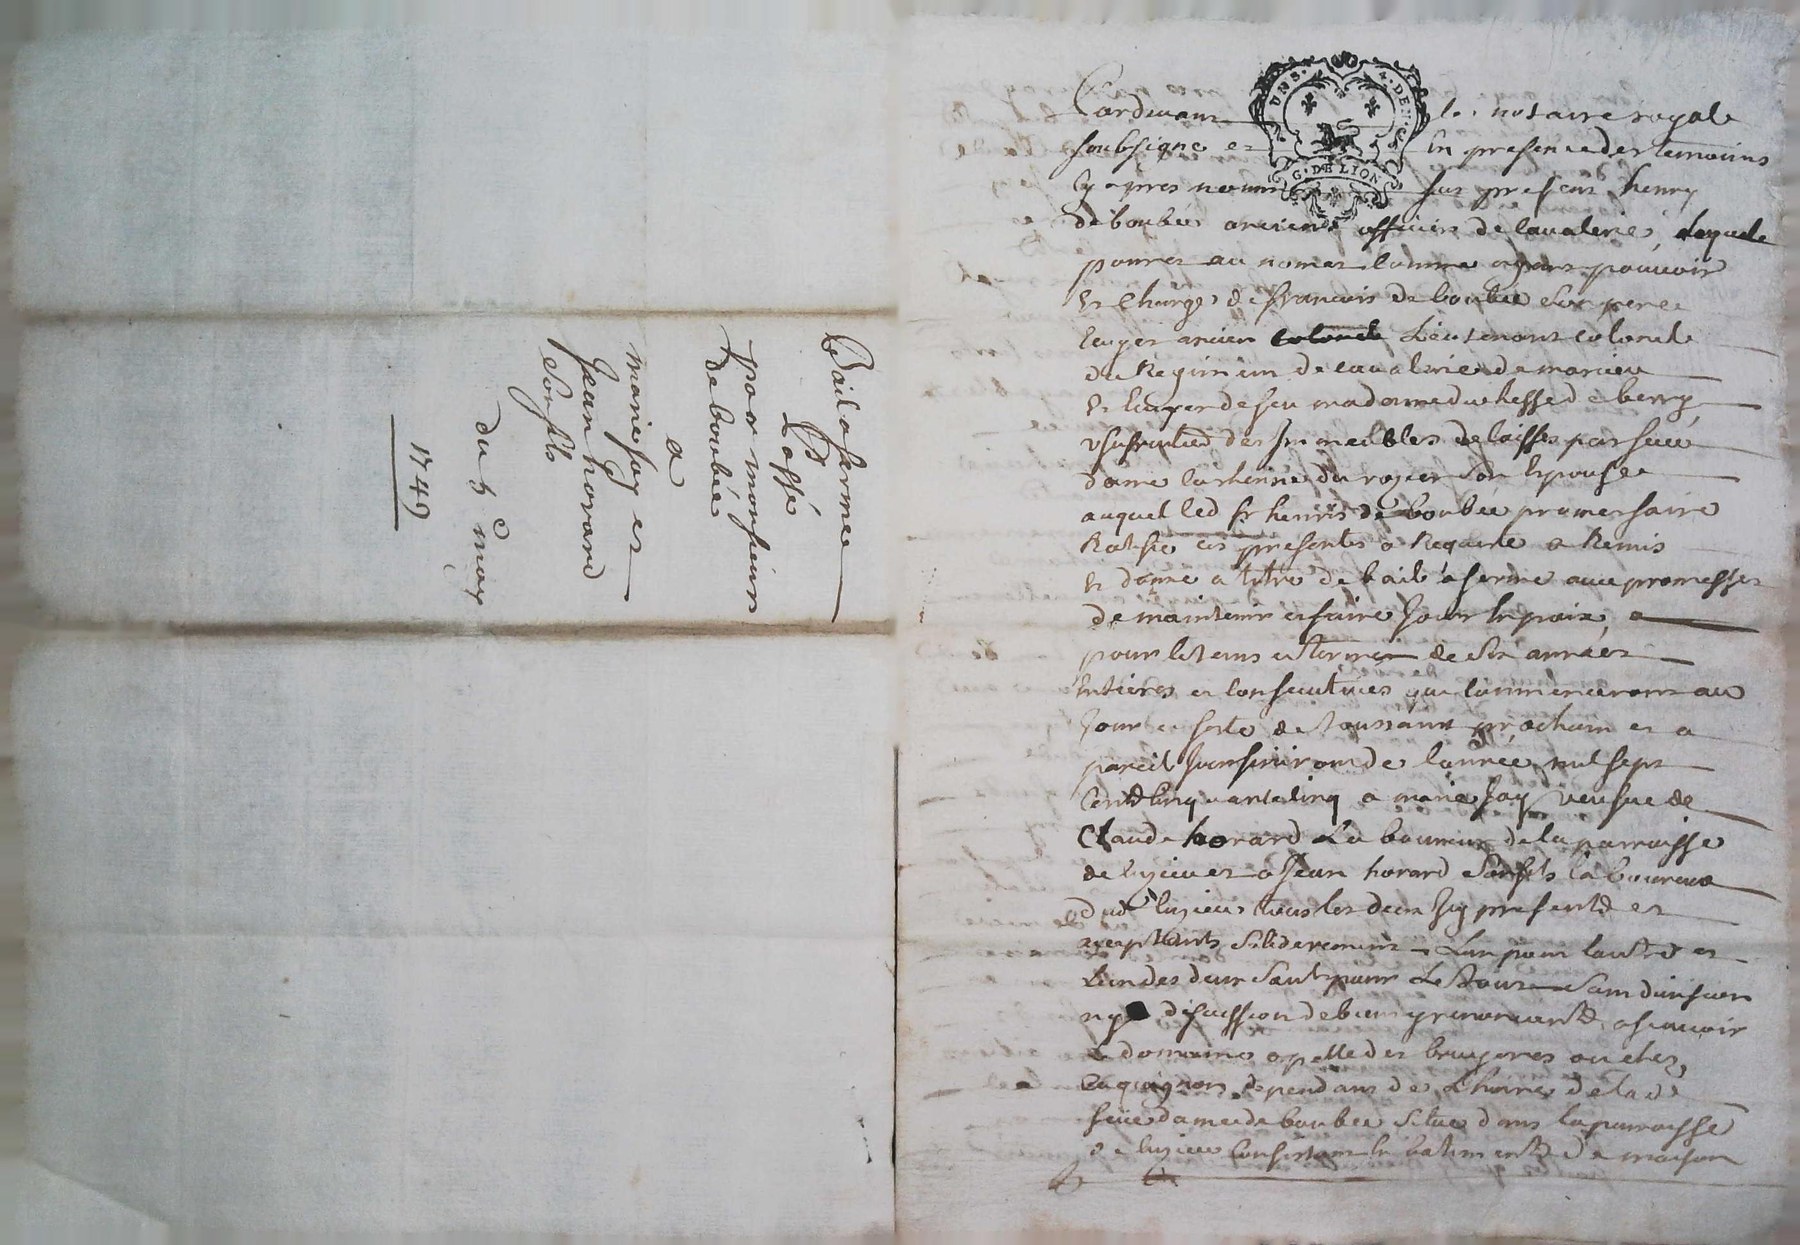 Bail a ferme
Passé
par monsieur
de boubée
a
marie Jay et
Jean horard
son fils
du 5e may
1749
UN S. 4. DEN.
G. DE LION
Pardevant le notaire royale
soubsigné et en presence des temoins
cy apres nommes fut present henry
de boubée ancien officier de Cavalerie, lequele
pouvoir
et charge de francois de boubée son pere
Ecuyer ancien colonele Lieutenant colonele
du Regiment de cavalerie de marcieu
et Ecuyer de feu madame duchesse de berry
usufruitier des Immeubles delaissés par feue
dame du royer son Epouse
auquel led sr henris de boubée promet faire
Ratifie ces presentes a Requete a Remis
et donne a titre de bail a ferme avec promesses
de maintenir et faire Jouir En paix, a
pour le tems et terme de six années
entieres et consecutives qui commenceront au
Jour et feste de toussaint prochain et a
pareil Jour finiront de l'année mil sept
Cent Cinquante Cinq a marie Jay veufve de
Claude horard Laboureur de la parroisse
de luzieu et a Jean horard son fils laboureur
dud luzieu tous les deux Icy presents et
acceptants soliderement Lun pour lautre et
Lun des deux seul pour Le tout sans division
ny discussion de biens y renoncants, ascavoir
Le domaine apelle des bruyeres ou chez
dependant de L'hoirie de lad
feue dame de boubée situé dans la parroisse
de luzieu Consistant En batiments de maison